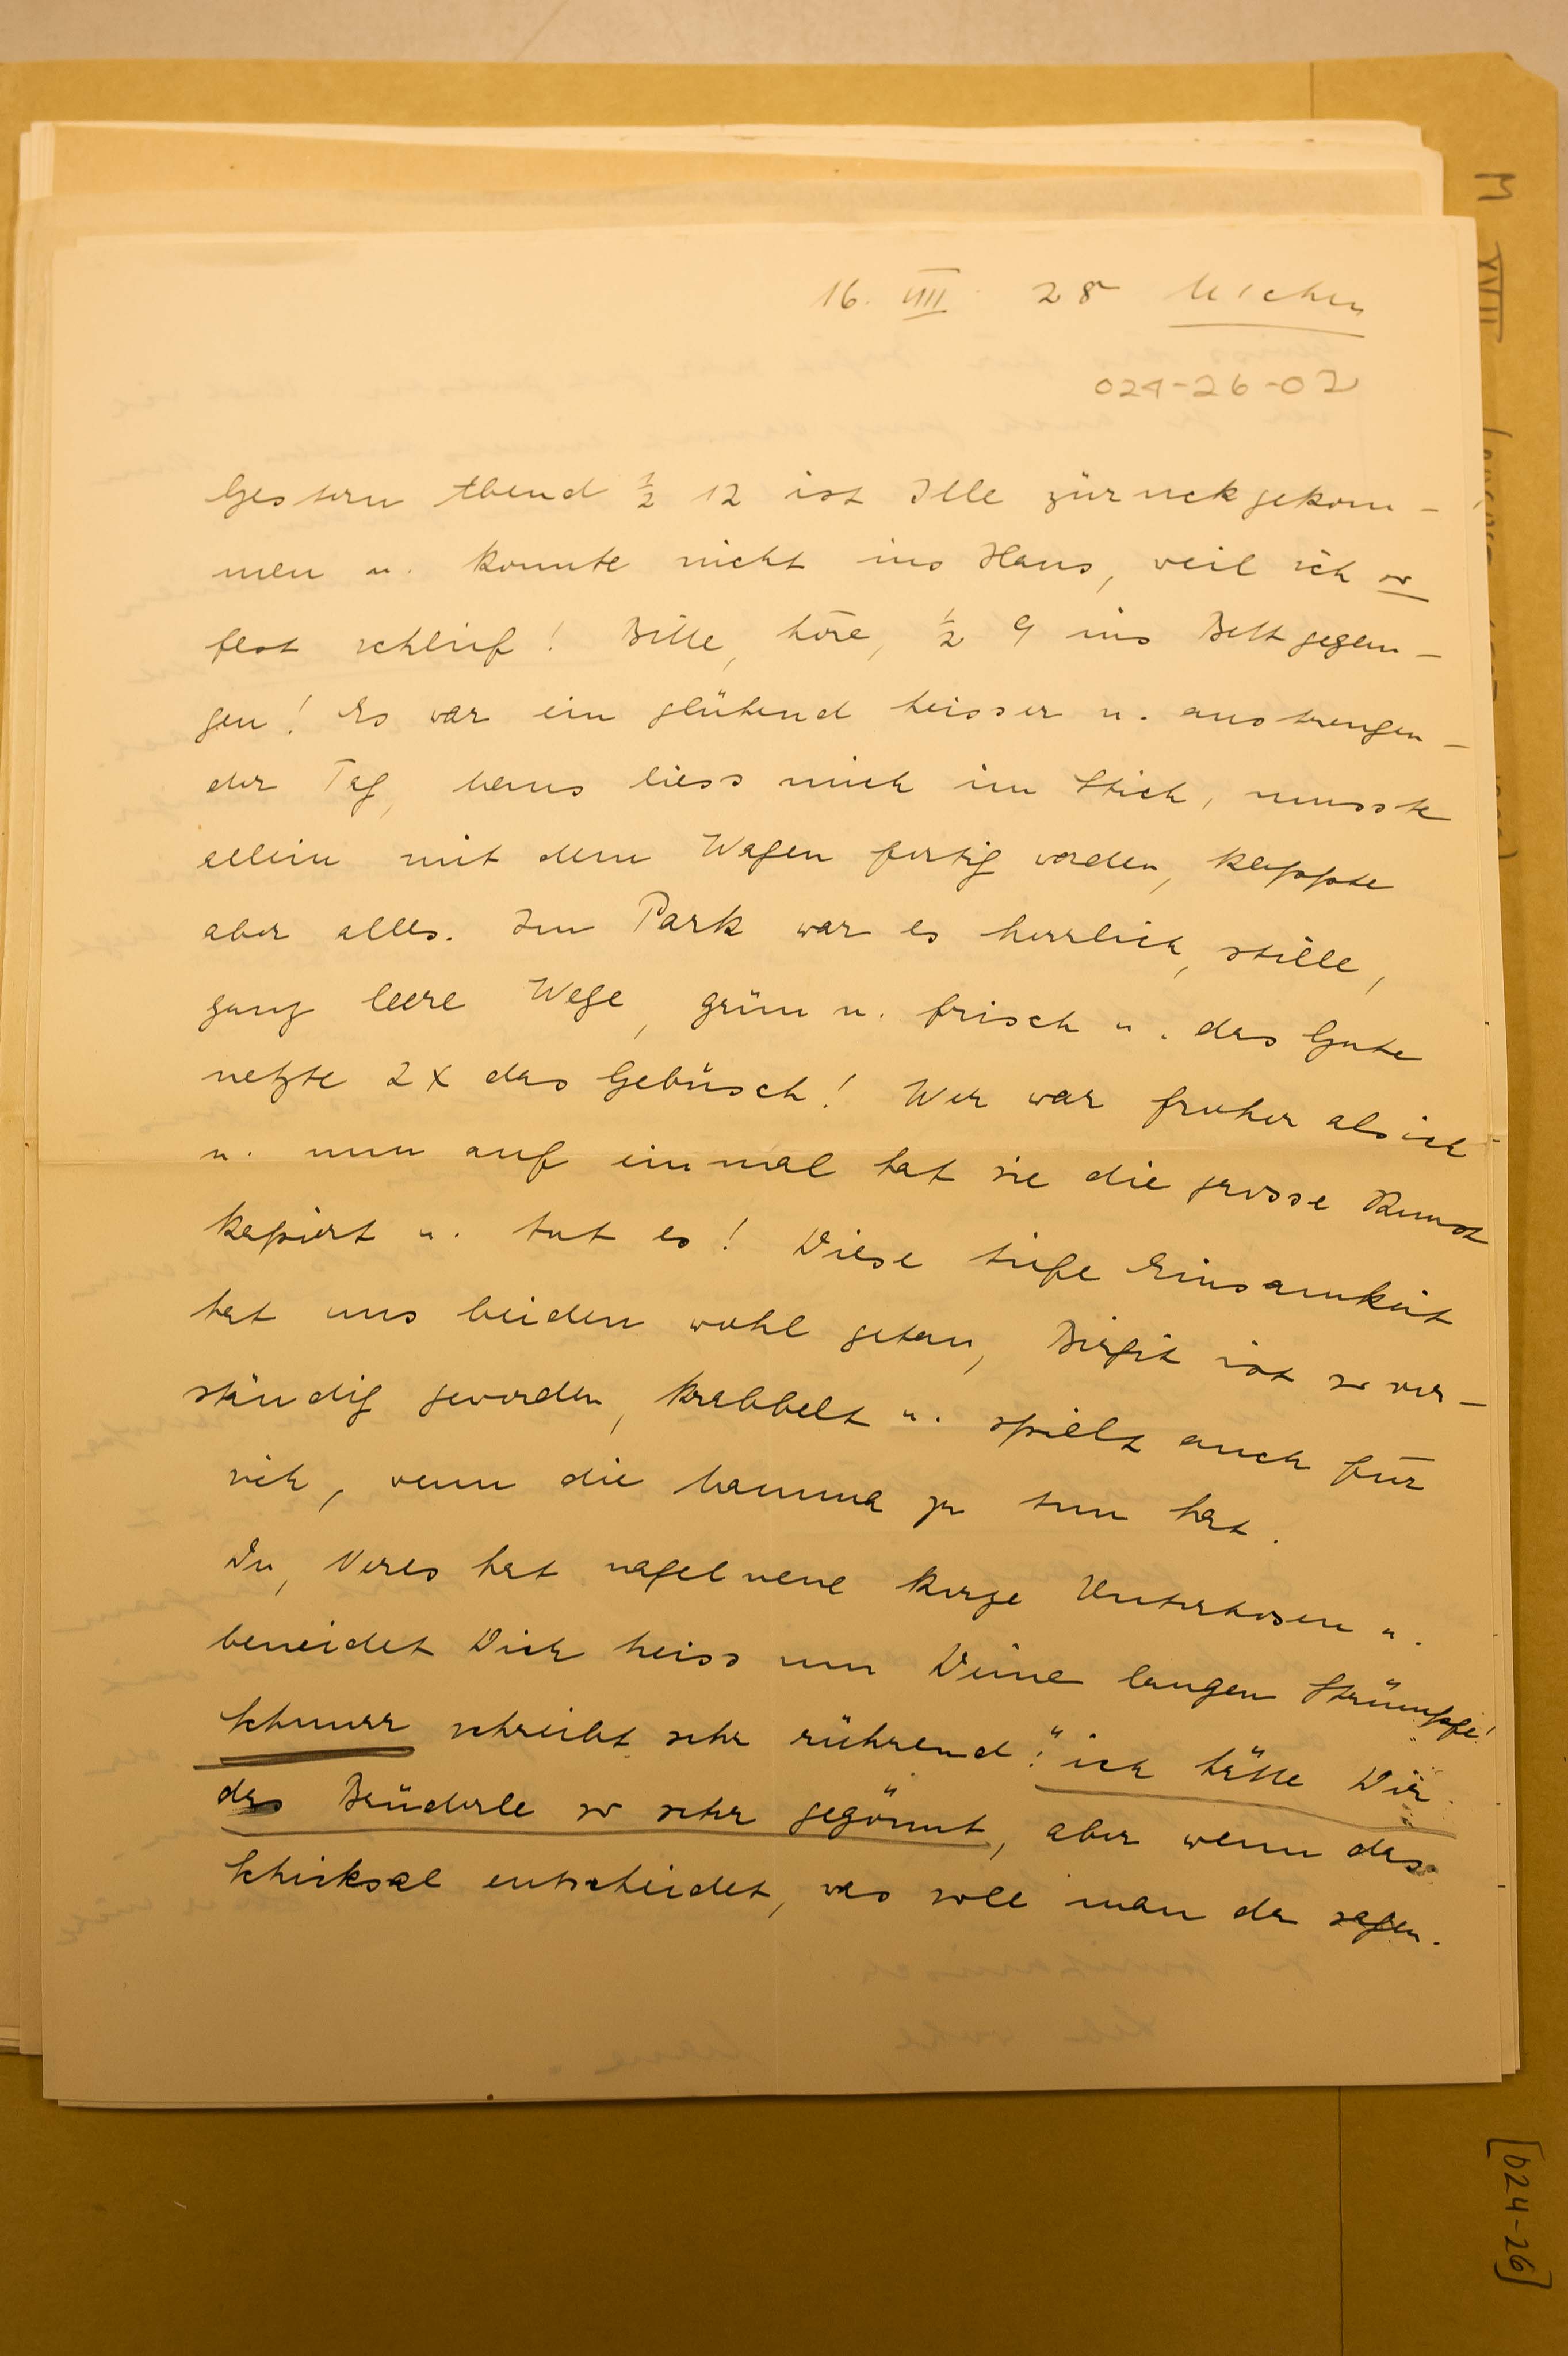 16. VIII 28
024-26-02
Gestern Abend ½ 12 ist Ille zürückgekom-
men u. konnte nicht ins Haus, weil ich so
fest schlief! Bitte, höre, ½ 9 ins Bett gegan-
gen! Es war ein glühend heisser u. anstrengen-
der Tag, liess mich im Stich, musste
allein mit dem Wagen fertig werden, klappte
aber alles. Im Park war es herrlich, stille,
ganz leere Wege, grün u. frisch u. das Gute
netzte 2x das Gebüsch! War früher als ich
u. nun auf einmal hat sie die grosse Kunst
kapiert u. tut es! Diese tiefe Einsamkeit
hat uns beiden wohl getan, Birgit ist so ver-
ständig geworden, krabbelt u. spielt auch für
sich, wenn die Mamma zu tun hat.
Du, Veres hat nagelneue kurze Unterhosen u.
beneidet Dich heiss um Deine langen Strümpfe!
Schnurr schreibt sehr rührend: "ich hätte Dir
das Brüderle so sehr gegönnt, aber wenn das
Schicksal entscheidet, was soll man da sagen.
M XVII
[024-26]